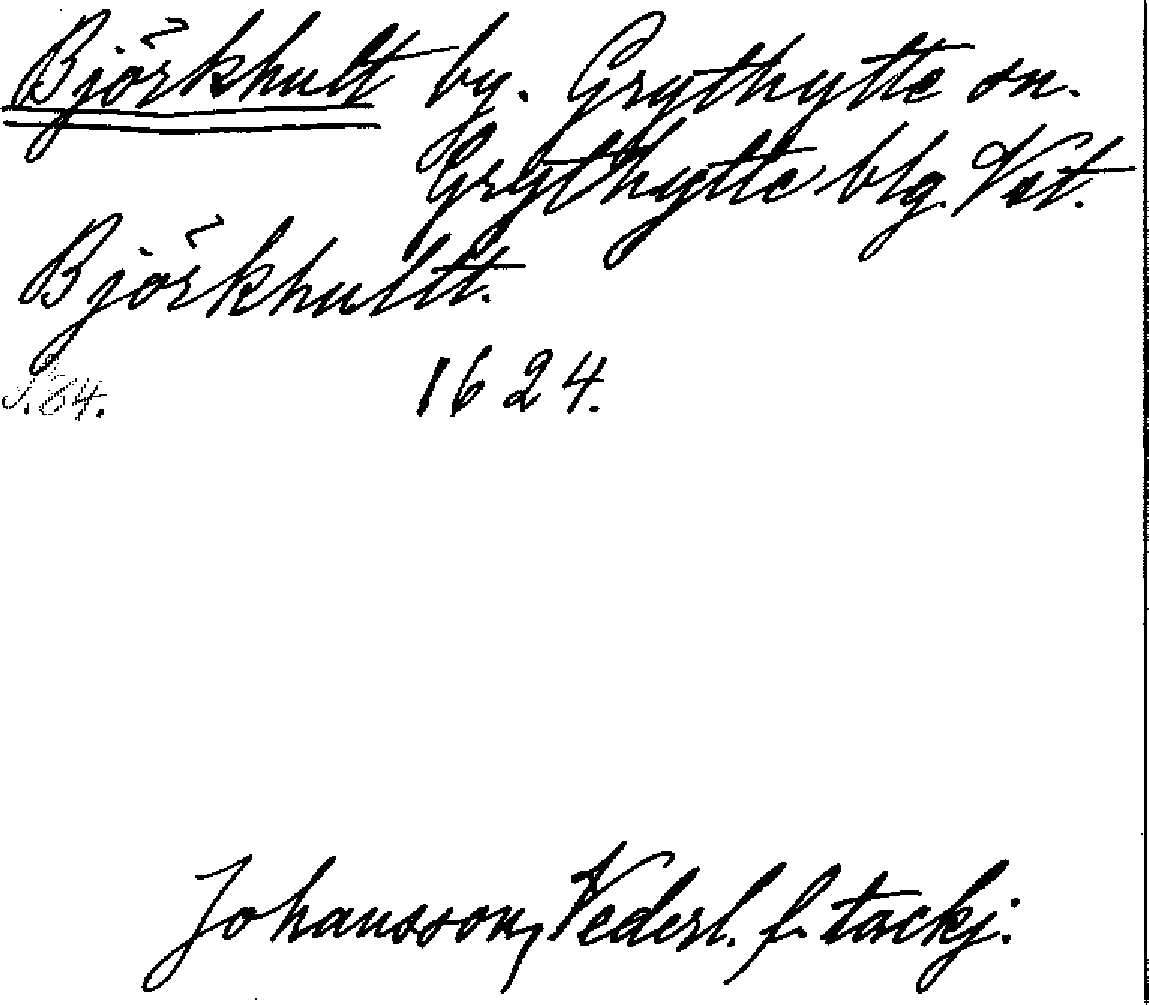 Björkhult by. Grythytte sn.
Grythytte blg. Vst.
Björkhultt.
S. 64. 1624.
Johansson, Vederl. f. tackj.